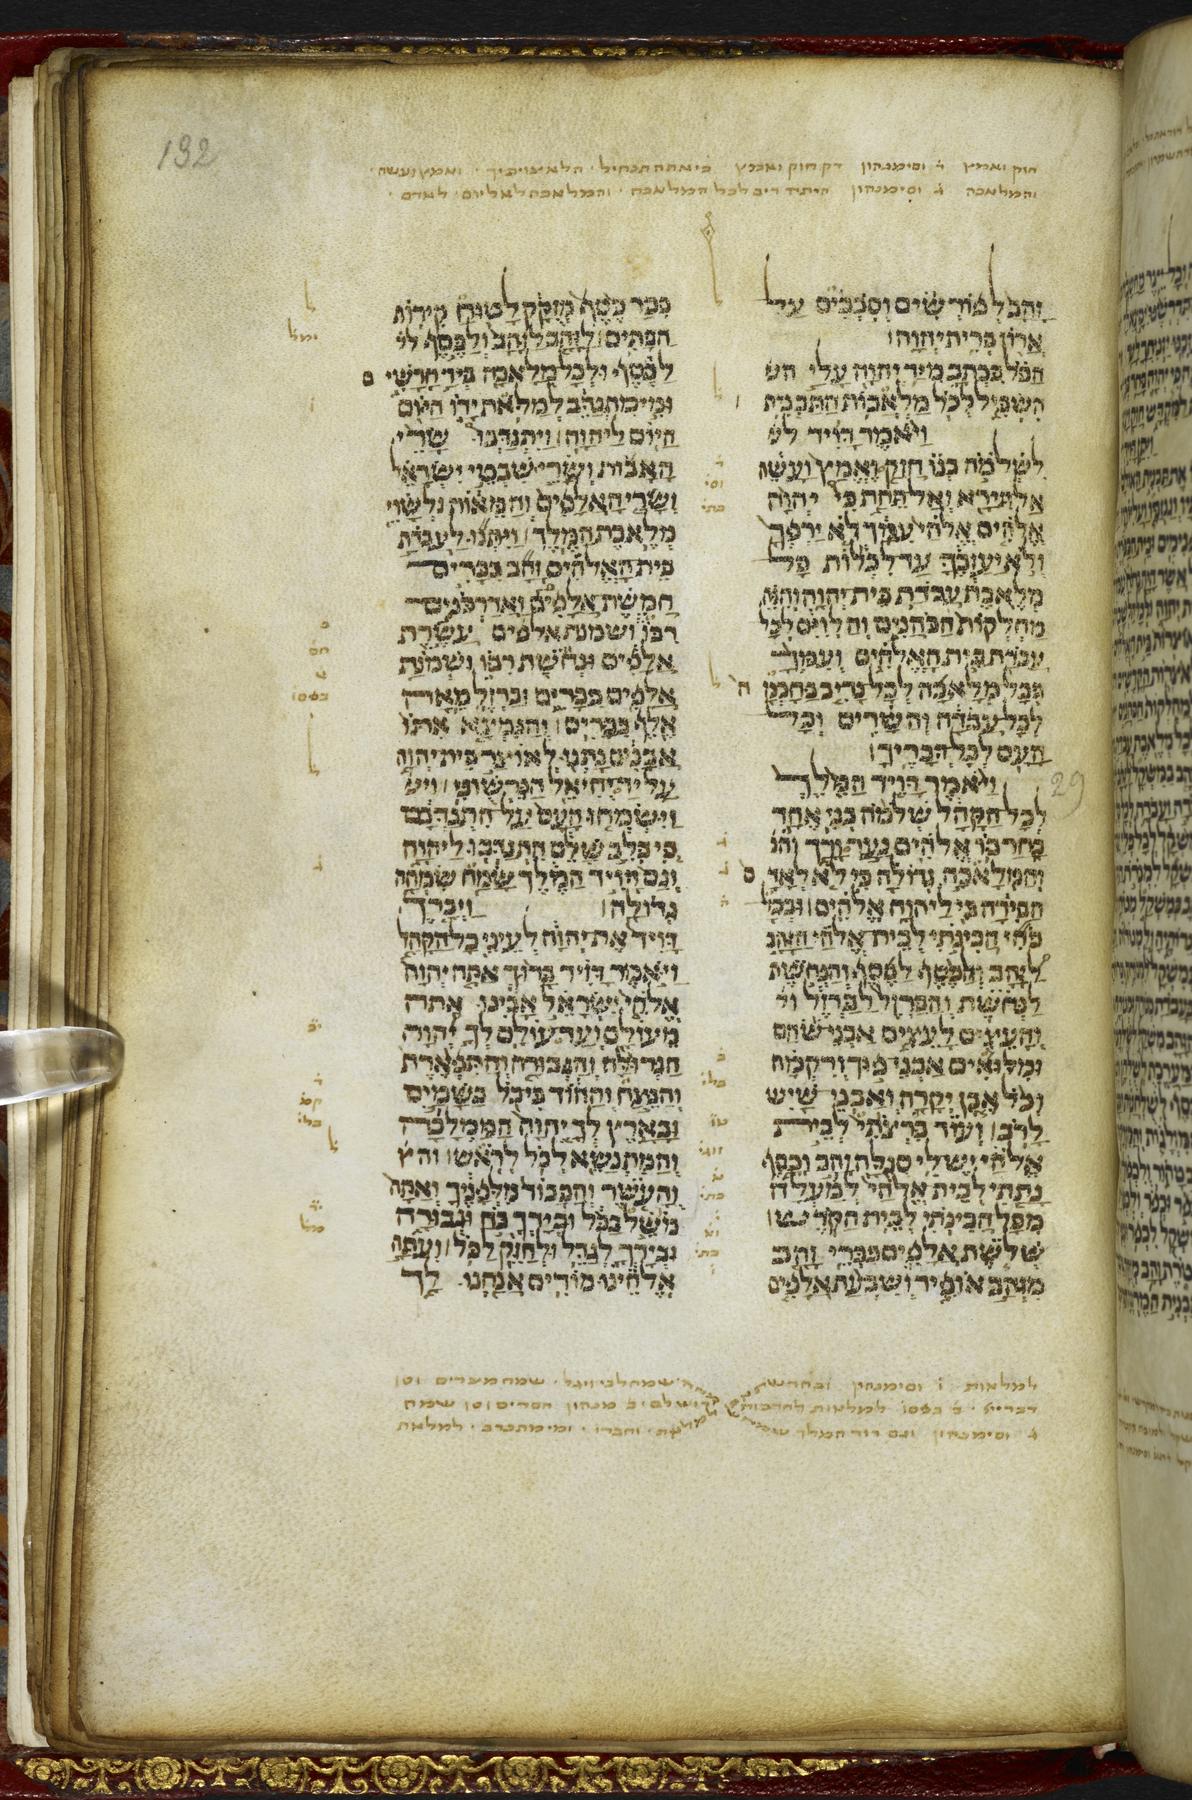 132
חזק ואמץ ד וסימנהון רק חזק ואמץ כי אתה תנחיל הלא צויתיך ואמץ ועשה
והמלאכה ג וסימנהון היתה דים לכל המלאכה והמלאכה לא ליום לאדם
זהב לפורשים וסככים על
ארון ברית יהוה
הכל בכתב מיד יהוה עלי הש
השכיל כל מלאכות התבנית
ויאמר דויד לש
לשלמה בנו חזק ואמץ ועשה
אל תירא ואל תחת כי יהוה
אלהים אלהי עמך לא ירפך
ולא יעזבך עד לכלות כל
מלאכת עבדת בית יהוה והנה
מחלקות הכהנים והלוים לכל
עבדת בית האלהים ועמך
בכל מלאכה לכל נדיב בחכמה
לכל עבדה והשרים וכל
העם לכל דבריך
29
ויאמר דויד המלך
לכל הקהל שלמה בני אחד
בחר בו אלהים נער ורך והמ
והמלאכה גדולה כי לא לאדם
הבירה כי ליהוה אלהים וככל
כחי הכינתי לבית אלהי הזהב
לזהב והכסף לכסף והנחשת
לנחשת והברזל לברזל וה
והעצים לעצים אבני שהם
ומלואים אבני פוך ורקמה
וכל אבן יקרה ואבני שיש
לרב ועוד ברצתי לבית
אלהי יש לי סגלה זהב וכסף
נתתי לבית אלהי למעלה
מכל הכינתי לבית הקדש
שלשת אלפים ככרי זהב
מזהב אופיר ושבעת אלפים
ככר כסף מזקק לטוח קירות
הבתים לזהב לזהב ולכסף לכ
לכסף ולכל מלאכה ביד חרשים
ומי מתנדב למלאת ידו היום
היום ליהוה ויתנדבו שרי
האבות ושרי שבטי ישראל
ושרי האלפים והמאות ולשרי
מלאכת המלך ויתנו לעבדת
בית האלהים זהב ככרים
חמשת אלפים ואדרכנים
רבו ושמנת אלפים עשרת
אלפים ונחשת רבו ושמנת
אלפים ככרים וברזל מאה
אלף ככרים והנמצא אתו
אבנים נתנו לאוצר בית יהוה
על יד יחיאל הגרשוני ויש
וישמחו העם על התנדבם
כי בלב שלם התנדבו ליהוה
וגם דויד המלך שמח שמחה
גדולה ויברך
דויד את יהוה לעיני כל הקהל
ויאמר דויד ברוך אתה יהוה
אלהי ישראל אבינו אתה
מעולם ועד עולם לך יהוה
הגדולה והגבורה והתפארת
והנצח וההוד כי כל בשמים
ובארץ לך יהוה הממלכה
והמתנשא לכל לראש והע
והעשר והכבוד מלפניך ואתה
מושל בכל ובידך כח וגבורה
ובידך לגדל ולחזק לכל ועתה
אלהינו מודים אנחנו לך